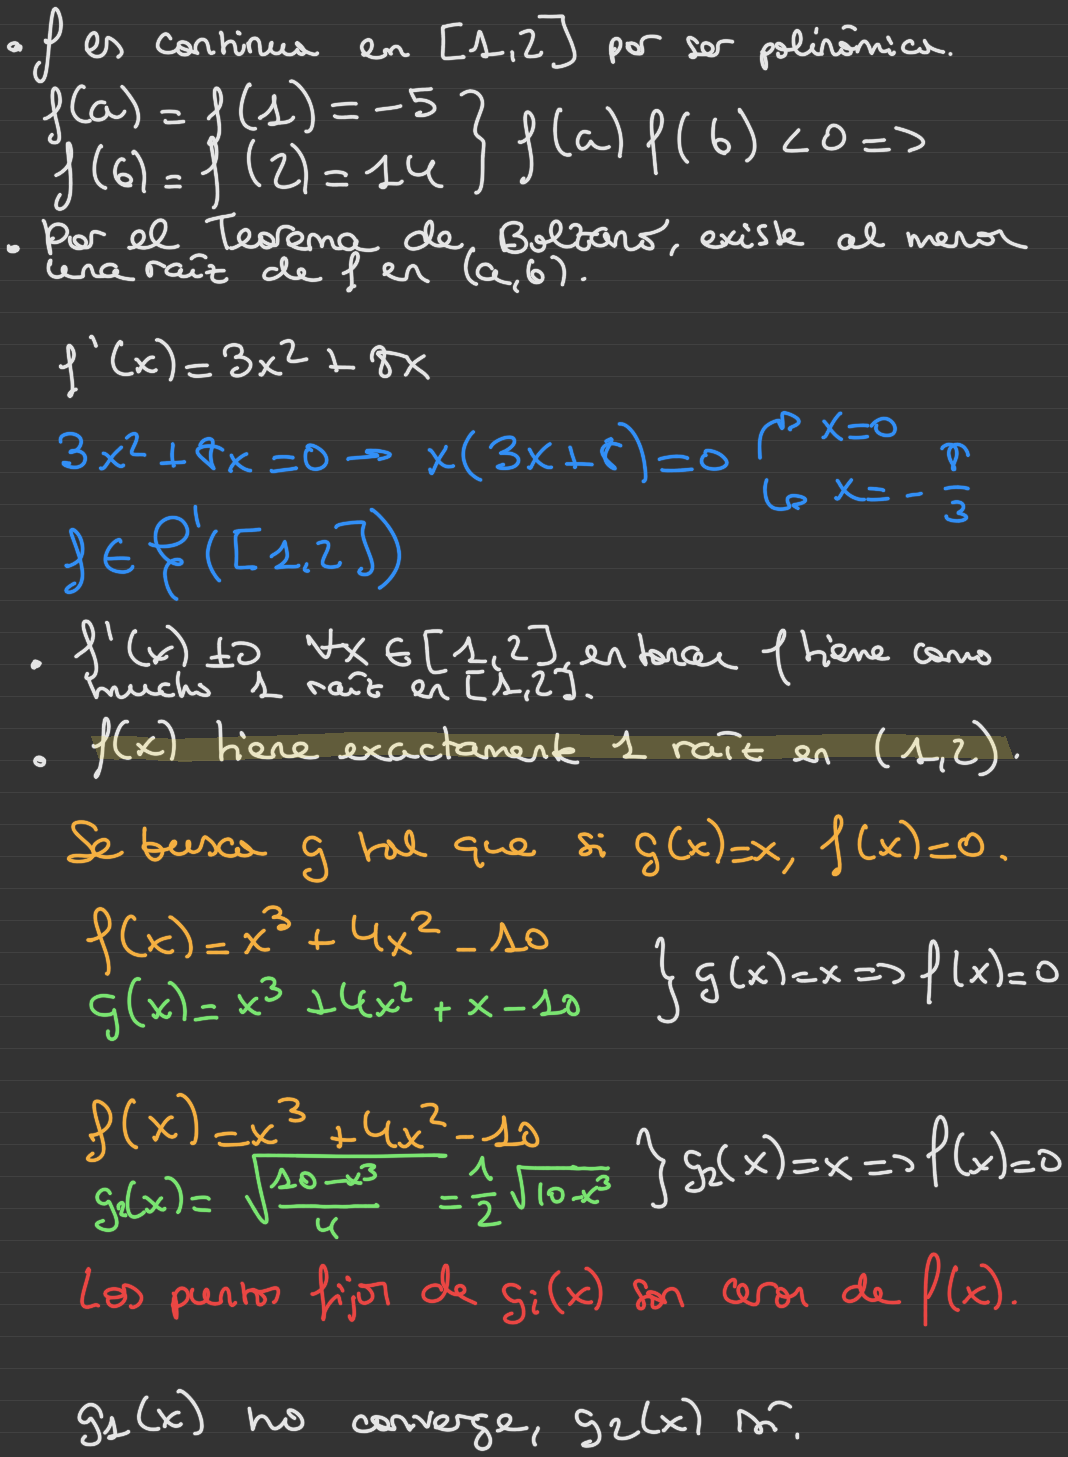 • f es continua en [1,2] por ser polinómica.
f(a) = f(1) = -5
f(b) = f(2) = 14 } f(a) f(b) < 0 =>
• Por el Teorema de Bolzano, existe al menos
una raíz de f en (a,b).
f'(x) = 3x² + 8x
3x² + 8x = 0 → x(3x+8) = 0 ↱ x=0
↳ x = - 8/3
f ∈ C¹([1,2])
• f'(x) ≠ 0 ∀x ∈ [1,2], entonces f tiene como
mucho 1 raíz en [1,2].
• f(x) tiene exactamente 1 raíz en (1,2).
Se busca g tal que si g(x)=x, f(x)=0.
f(x) = x³ + 4x² - 10
g(x) = x³ + 4x² + x - 10 } g(x)=x => f(x)=0
f(x) = x³ + 4x² - 10
g₂(x) = √((10-x³)/4) = 1/2 √(10-x³) } g₂(x)=x => f(x)=0
Los puntos fijos de gᵢ(x) son ceros de f(x).
g₁(x) no converge, g₂(x) sí.